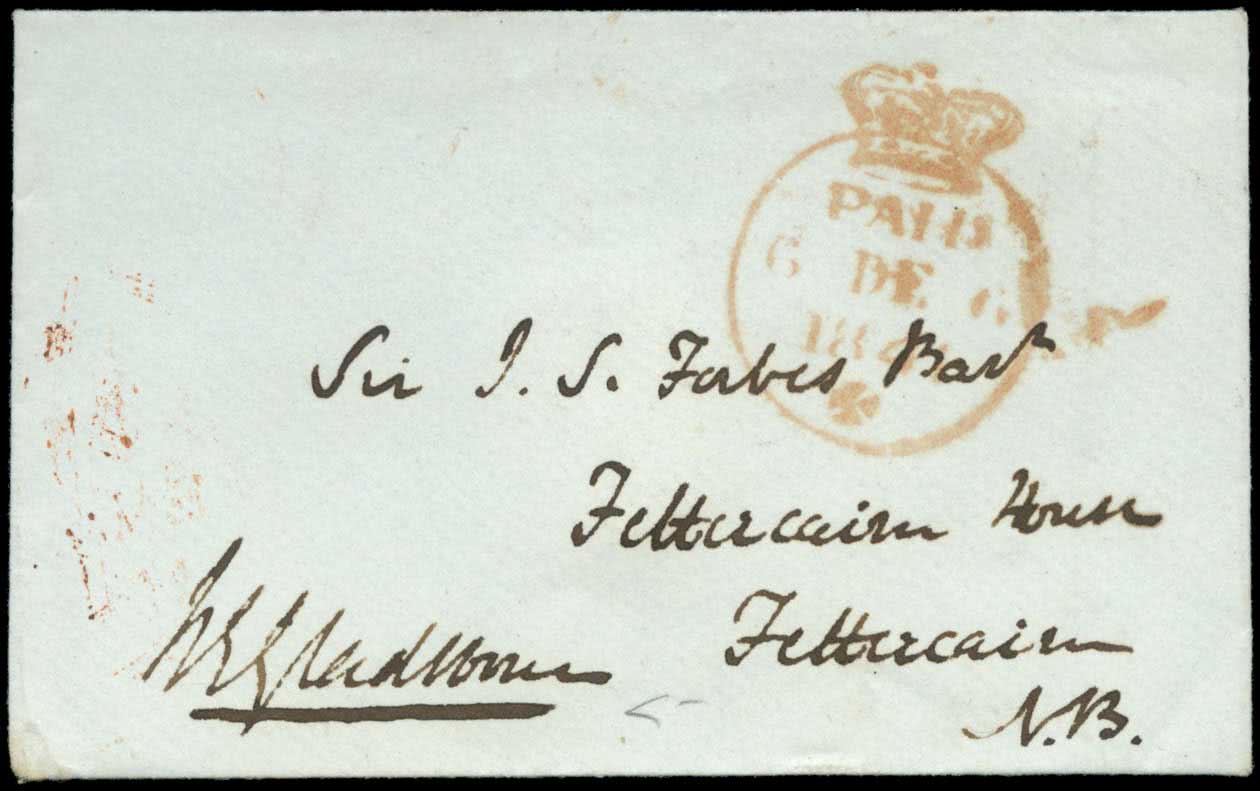 PAID
6 DE 6
Sir J. S. Forbes Bart
Fettercairn House
Fettercairn
N.B.
WEGladstone